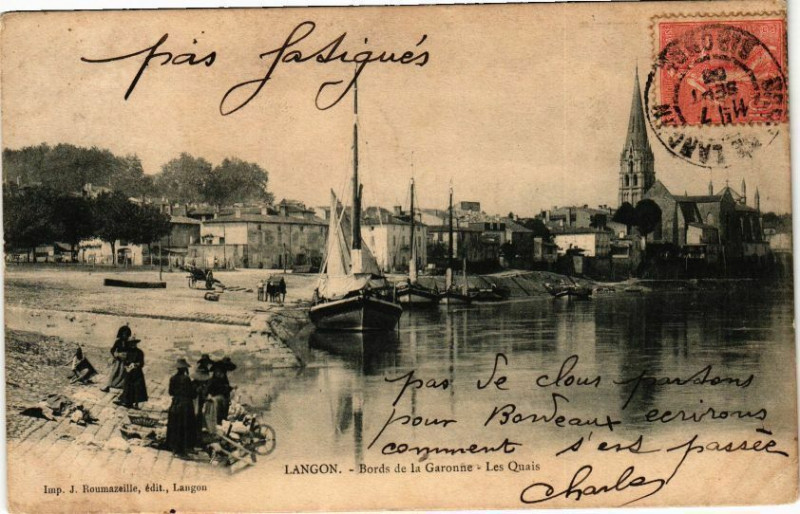 pas fatigués
LANGON
7
SEPT
pas de clous partons
pour Bordeaux ecrirons
comment s'est passée
Charles
LANGON. - Bords de la Garonne - Les Quais
Imp. J. Roumazeille, édit., Langon